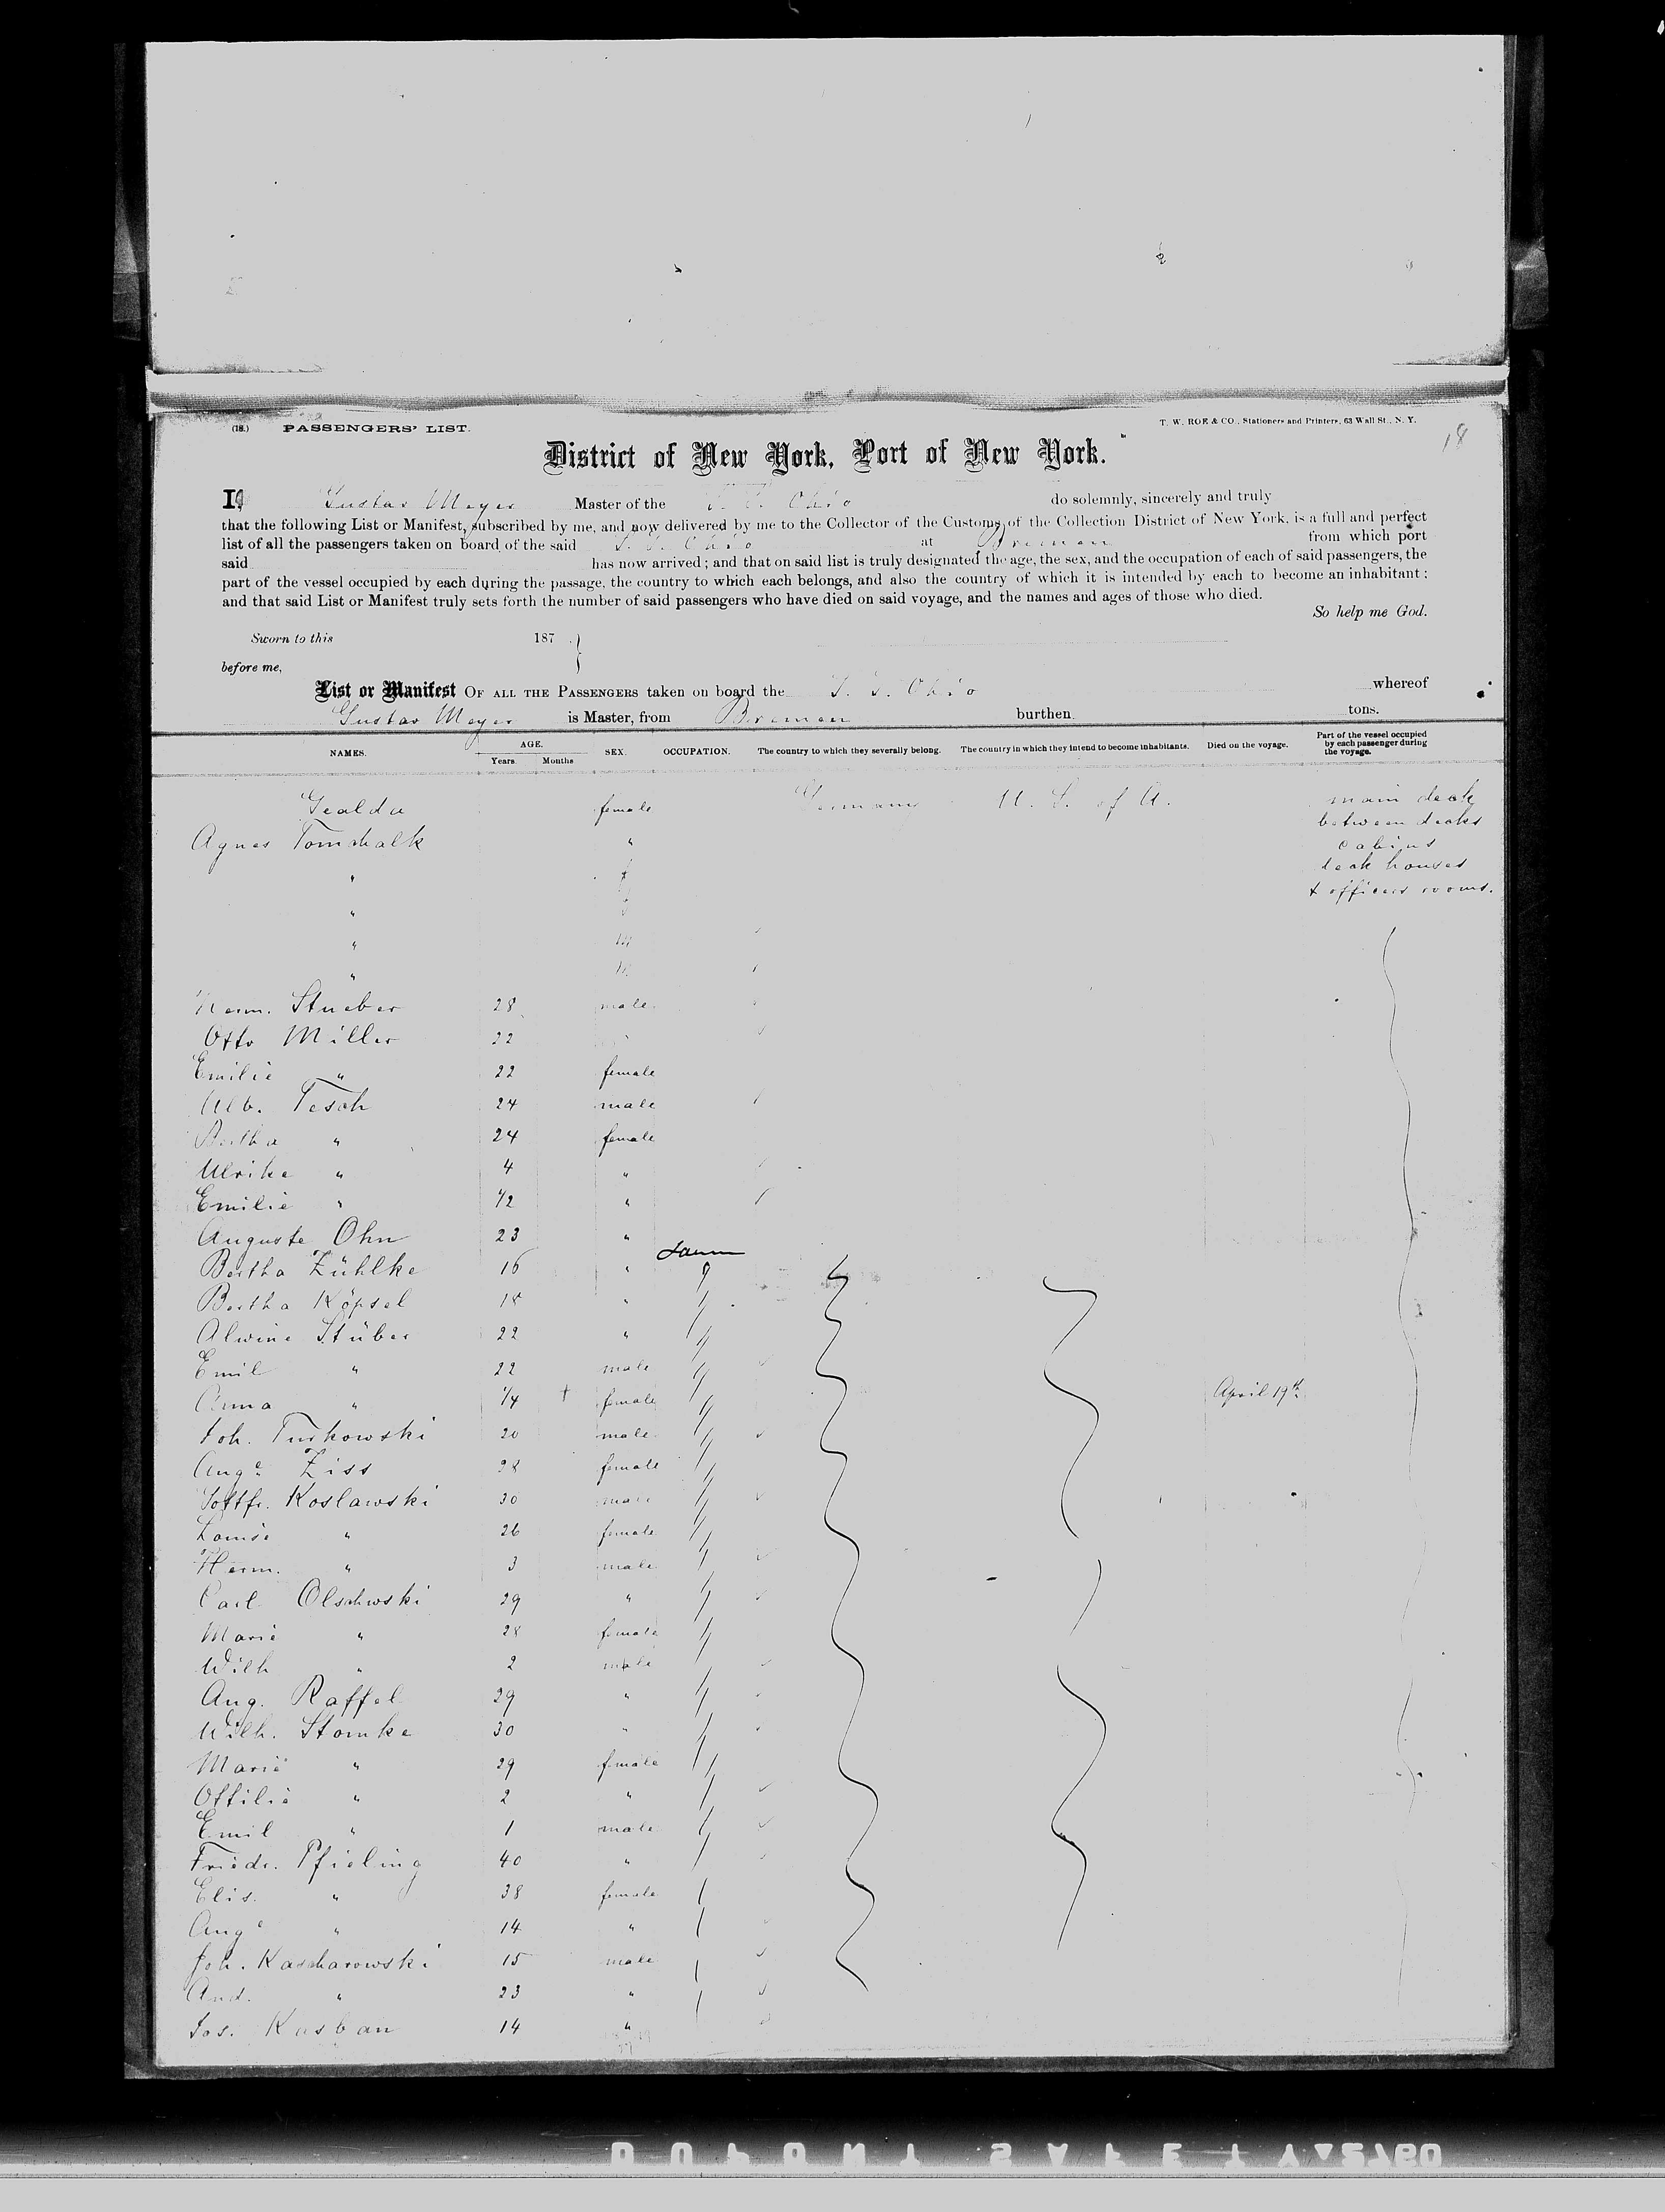 (18.) PASSENGERS' LIST.
T. W. ROE & CO., Stationers and Printers, 63 Wall St., N. Y.
18
District of New York, Port of New York.
I, Gustav Meyer Master of the S. S. Ohio do solemnly, sincerely and truly
that the following List or Manifest, subscribed by me, and now delivered by me to the Collector of the Customs of the Collection District of New York, is a full and perfect
list of all the passengers taken on board of the said S. S. Ohio at Bremen from which port
said has now arrived; and that on said list is truly designated the age, the sex, and the occupation of each of said passengers, the
part of the vessel occupied by each during the passage, the country to which each belongs, and also the country of which it is intended by each to become an inhabitant;
and that said List or Manifest truly sets forth the number of said passengers who have died on said voyage, and the names and ages of those who died.
So help me God.
Sworn to this 187
before me,
List or Manifest OF ALL THE PASSENGERS taken on board the S. S. Ohio whereof
Gustav Meyer is Master, from Bremen burthen tons.
NAMES. AGE. Years. Months SEX. OCCUPATION. The country to which they severally belong. The country in which they intend to become inhabitants. Died on the voyage. Part of the vessel occupied by each passenger during the voyage.
Gealda female Germany U. S. of A. main deck
between decks
Agnes Tomschalk " cabins
" f deck houses
" f & officers rooms.
" m
" m
Herm. Stueber 28 male
Otto Miller 22
Emilie " 22 female
Alb. Tesch 24 male
Bertha " 24 female
Ulrike " 4 "
Emilie " 1/2 "
Auguste Ohn 23 "
Bertha Zühlke 16 "
Bertha Köpsel 18 "
Alwine Stüber 22 "
Emil " 22 male
Anna " 1/4 † female April 19th
Joh. Turkowski 20 male
Auge Ziss 28 female
Gottfr. Koslawski 30 male
Louise " 26 female
Herm. " 3 male
Carl Olschwski 29 "
Marie " 28 female
Wilh " 2 male
Aug. Raffel 29 "
Wilh. Stomke 30 "
Marie " 29 female
Ottilie " 2 "
Emil " 1 male
Friedr. Pfieling 40 "
Elis. " 38 female
Auge " 14 "
Joh. Kascharowski 15 male
And. " 23 "
Jos. Kasban 14 "